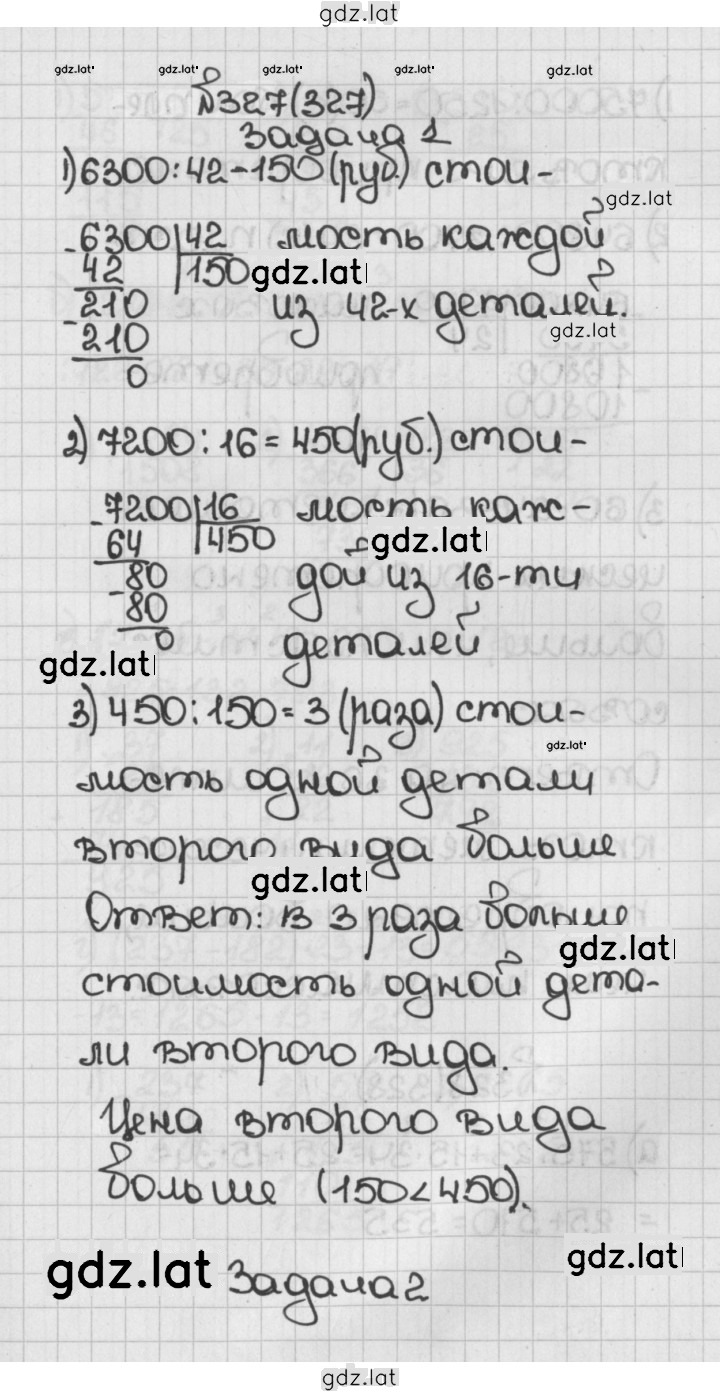 gdz.lat
gdz.lat gdz.lat gdz.lat gdz.lat gdz.lat
№327(327)
Задача 1
1) 6300:42-150(руб.) стои-
gdz.lat
6300 42 мость каждой
42 150 gdz.lat
210 из 42-х деталей.
210 gdz.lat
0
2) 7200:16=450(руб.) стои-
7200 16 мость каж-
64 450 gdz.lat
80 дой из 16-ти
80
0 деталей
gdz.lat
3) 450:150=3 (раза) стои-
gdz.lat
мость одной детали
второго вида больше
gdz.lat
Ответ: в 3 раза больше
gdz.lat
стоимость одной дета-
ли второго вида.
Цена второго вида
больше (150<450).
gdz.lat Задача 2 gdz.lat
gdz.lat